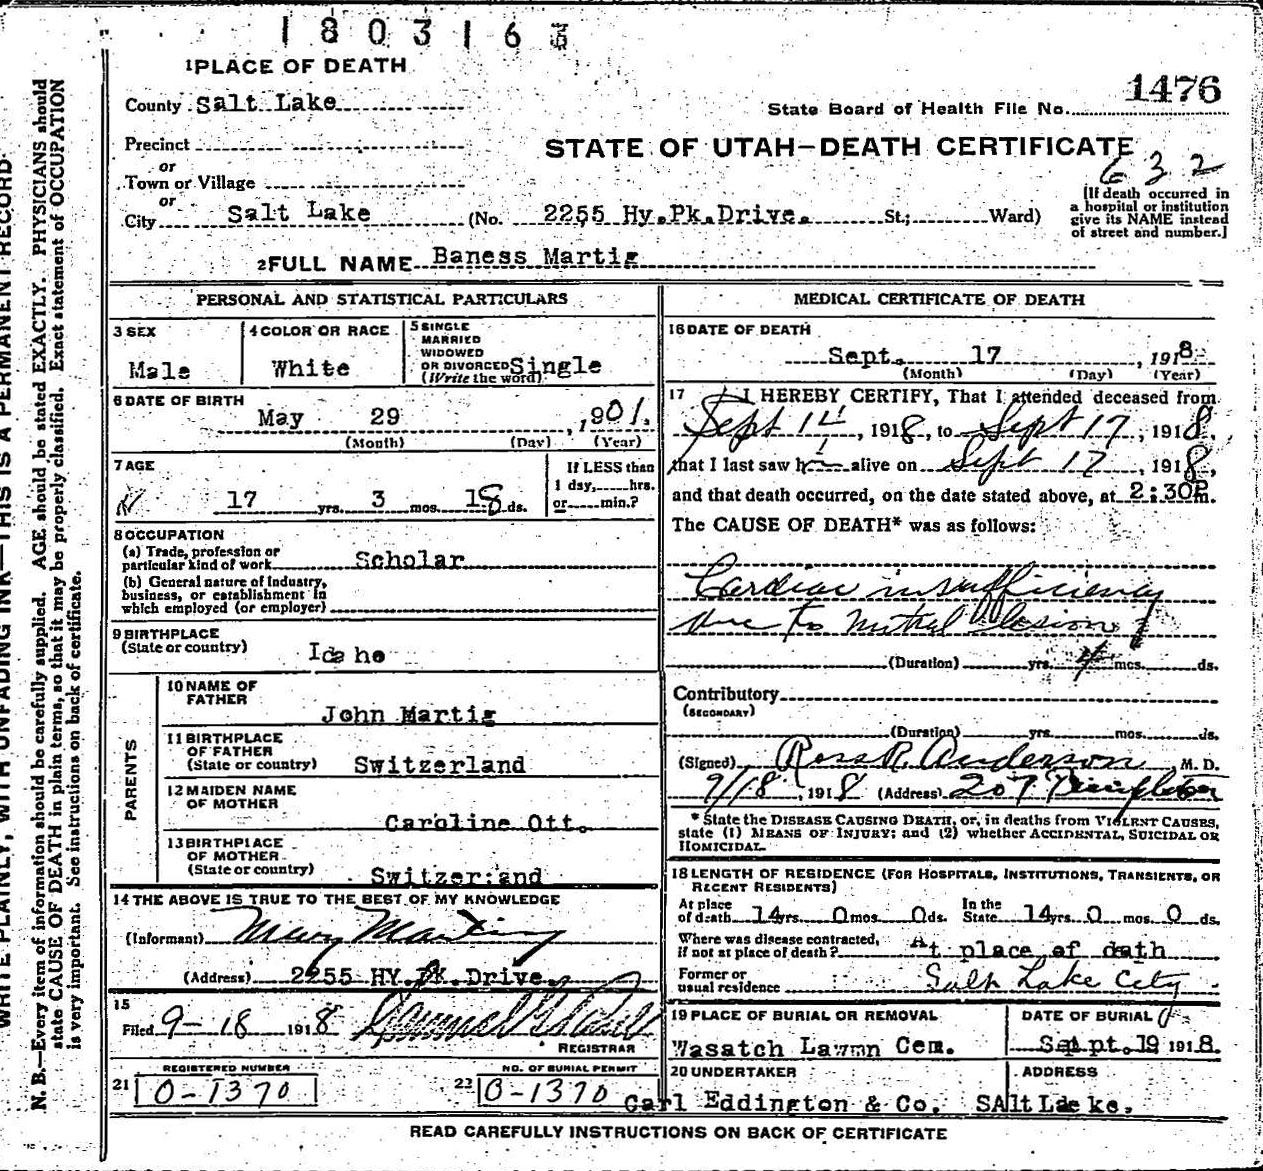 1803163
1 PLACE OF DEATH
1476
County Salt Lake
State Board of Health File No.
Precinct
STATE OF UTAH—DEATH CERTIFICATE
or
632
Town or Village
or
City Salt Lake (No. 2255 Hy.Pk.Drive. St.; Ward)
[If death occurred in
a hospital or institution
give its NAME instead
of street and number.]
2 FULL NAME Baness Martig
PERSONAL AND STATISTICAL PARTICULARS
3 SEX
Male
4 COLOR OR RACE
White
5 SINGLE
MARRIED
WIDOWED
OR DIVORCED Single
(Write the word)
6 DATE OF BIRTH
May 29, 1901.
(Month) (Day) (Year)
7 AGE
17 yrs. 3 mos. 18 ds.
If LESS than
1 day, hrs.
or min.?
8 OCCUPATION
(a) Trade, profession or
particular kind of work Scholar
(b) General nature of Industry,
business, or establishment in
which employed (or employer)
9 BIRTHPLACE
(State or country) Idaho
PARENTS
10 NAME OF
FATHER
John Martig
11 BIRTHPLACE
OF FATHER
(State or country) Switzerland
12 MAIDEN NAME
OF MOTHER
Caroline Ott.
13 BIRTHPLACE
OF MOTHER
(State or country) Switzerland
14 THE ABOVE IS TRUE TO THE BEST OF MY KNOWLEDGE
(Informant) Mary Marting
(Address) 2255 HY.PK.Drive.
15
Filed 9-18 1918
REGISTRAR
REGISTERED NUMBER
21 O-1370
NO. OF BURIAL PERMIT
22 O-1370
MEDICAL CERTIFICATE OF DEATH
16 DATE OF DEATH
Sept. 17, 1918
(Month) (Day) (Year)
17 I HEREBY CERTIFY, That I attended deceased from
Sept 14, 1918, to Sept 17, 1918,
that I last saw h alive on Sept 17, 1918,
and that death occurred, on the date stated above, at 2:30P m.
The CAUSE OF DEATH* was as follows:
Cardiac insufficiency
due to mitral lesion
(Duration) yrs. 4 mos. ds.
Contributory
(SECONDARY)
(Duration) yrs. mos. ds.
(Signed) Ross R. Anderson, M. D.
9/18, 1918 (Address) 207 Templeton
* State the DISEASE CAUSING DEATH, or, in deaths from VIOLENT CAUSES,
state (1) MEANS OF INJURY; and (2) whether ACCIDENTAL, SUICIDAL OR
HOMICIDAL.
18 LENGTH OF RESIDENCE (FOR HOSPITALS, INSTITUTIONS, TRANSIENTS, OR
RECENT RESIDENTS)
At place
of death 14 yrs. 0 mos. 0 ds.
In the
State 14 yrs. 0 mos. 0 ds.
Where was disease contracted,
if not at place of death? At place of dath
Former or
usual residence Salt Lake City
19 PLACE OF BURIAL OR REMOVAL
Wasatch Lawmn Cem.
DATE OF BURIAL
Sept. 19 1918.
20 UNDERTAKER
Carl Eddington & Co.
ADDRESS
SAlt Lake.
READ CAREFULLY INSTRUCTIONS ON BACK OF CERTIFICATE
WRITE PLAINLY, WITH UNFADING INK—THIS IS A PERMANENT RECORD
N. B.—Every item of information should be carefully supplied. AGE should be stated EXACTLY. PHYSICIANS should
state CAUSE OF DEATH in plain terms, so that it may be properly classified. Exact statement of OCCUPATION
is very important. See instructions on back of certificate.